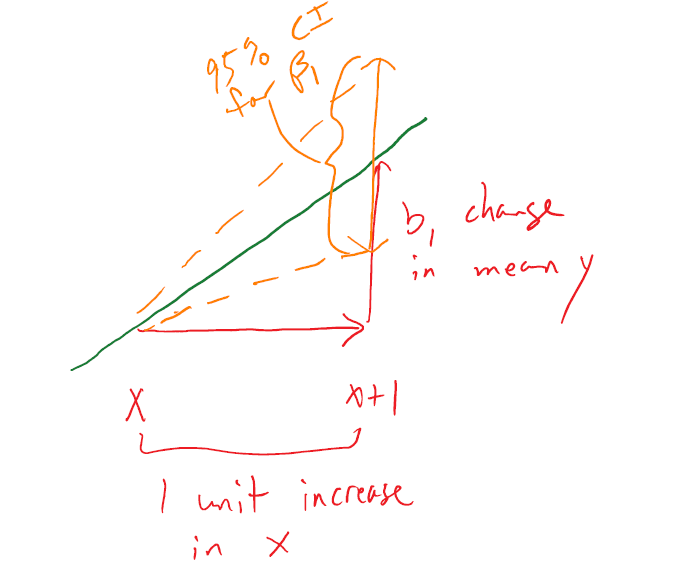 95% CI
for β₁
b₁ change
in mean y
x
x+1
1 unit increase
in x